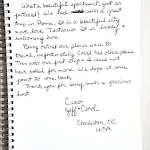 What a beautiful apartment, just as
pictured! We had
time in Rome. It is a beautiful city
& we love Testaccio. It is lovely &
welcoming here.
Being retired our plans were to
travel, unfortunately Covid had other plans.
This was our first trip & could not
have asked for more. We hope at some
point to come back.
Thank you for being such a gracious
host.
Ciao
Jeff & Carol
Charleston, SC
USA